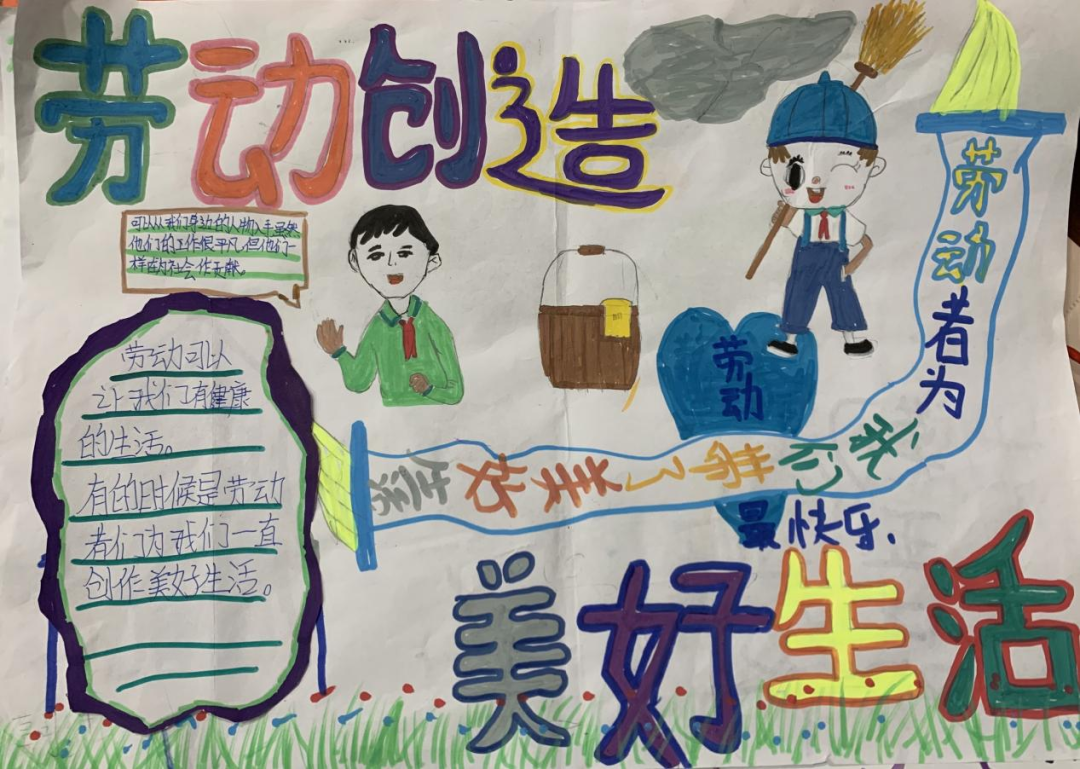 劳动创造
可以从我们身边的人物入手虽然
他们的工作很平凡,但他们一
样为社会作贡献。
劳动可以
让我们有健康
的生活。
有的时候是劳动
者们为我们一直
创作美好生活。
劳动者为
我们带了美好
生活
劳动
最快乐、
美好生活